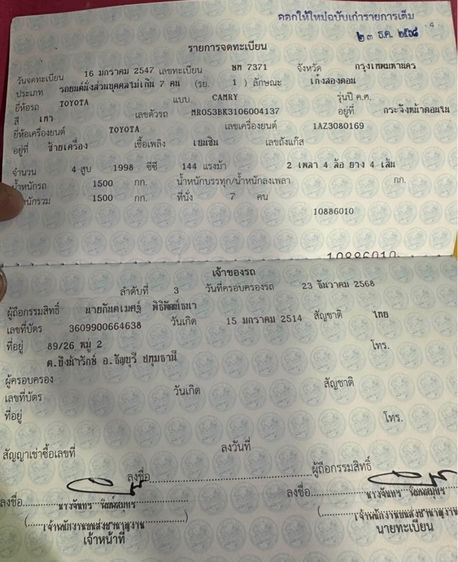 คดกให้ใหม่ฉบับเก่ารายการเต็ม
๒๓ ธ.ค. ๒๕๖๘
รายการจดทะเบียน
วันจดทะเบียน 16 มกราคม 2547 เลขทะเบียน 7371 จังหวัด กรุงเทพมหานคร
ประเภท รถยนต์นั่งส่วนบุคคลไม่เกิน 7 คน (รย. 1 ) ลักษณะ เก๋งสองตอน
ยี่ห้อรถ TOYOTA แบบ CAMRY รุ่นปี ค.ศ.
สี เทา เลขตัวรถ MR053BK3106004137 อยู่ที่
ยี่ห้อเครื่องยนต์ TOYOTA เลขเครื่องยนต์ 1AZ3080169
อยู่ที่ ซ้ายเครื่อง เชื้อเพลิง เบนซิน เลขถังแก๊ส
จำนวน 4 สูบ 1998 ซีซี 144 แรงม้า 2 เพลา 4 ล้อ ยาง 4 เส้น
น้ำหนักรถ 1500 กก. น้ำหนักบรรทุก/น้ำหนักลงเพลา กก.
น้ำหนักรวม 1500 กก. ที่นั่ง 7 คน
10886010
10886010
เจ้าของรถ
ลำดับที่ 3 วันที่ครอบครองรถ 23 ธันวาคม 2568
ผู้ถือกรรมสิทธิ์
เลขที่บัตร 3609900664638 วันเกิด 15 มกราคม 2514 สัญชาติ ไทย
ที่อยู่ 89/26 หมู่ 2 โทร.
ต.บึงยี่โถ อ.ธัญบุรี ปทุมธานี
ผู้ครอบครอง
เลขที่บัตร วันเกิด สัญชาติ
ที่อยู่ โทร.
สัญญาเช่าซื้อเลขที่ ลงวันที่
ลงชื่อ ผู้ถือกรรมสิทธิ์
ลงชื่อ ลงชื่อ
เจ้าหน้าที่ นายทะเบียน